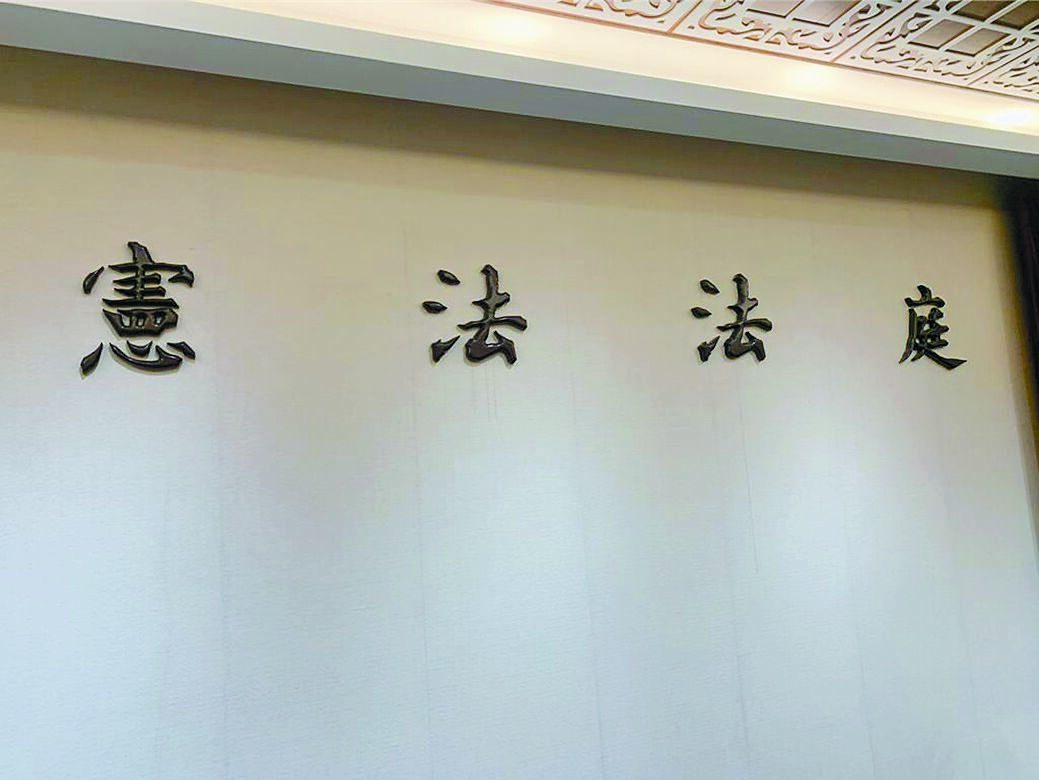 憲法法庭